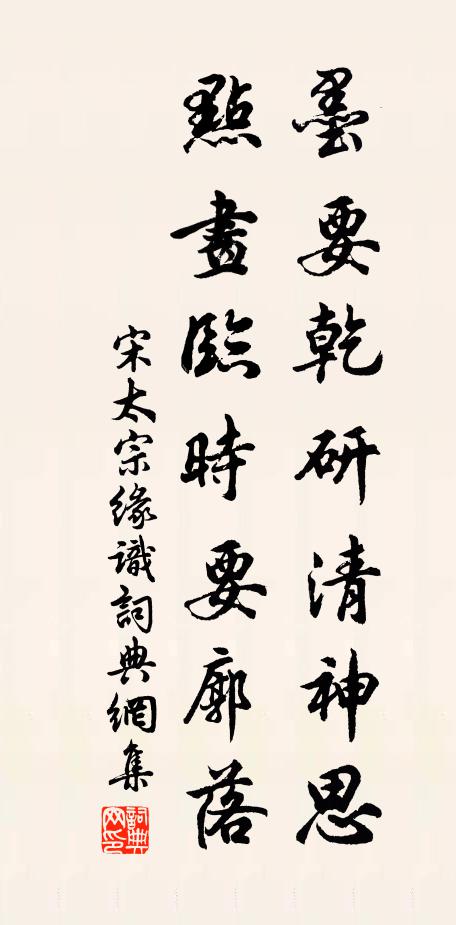 墨要乾研清神思
點畫臨時要廓落
宋太宗緣識詞典網集
詞典網印